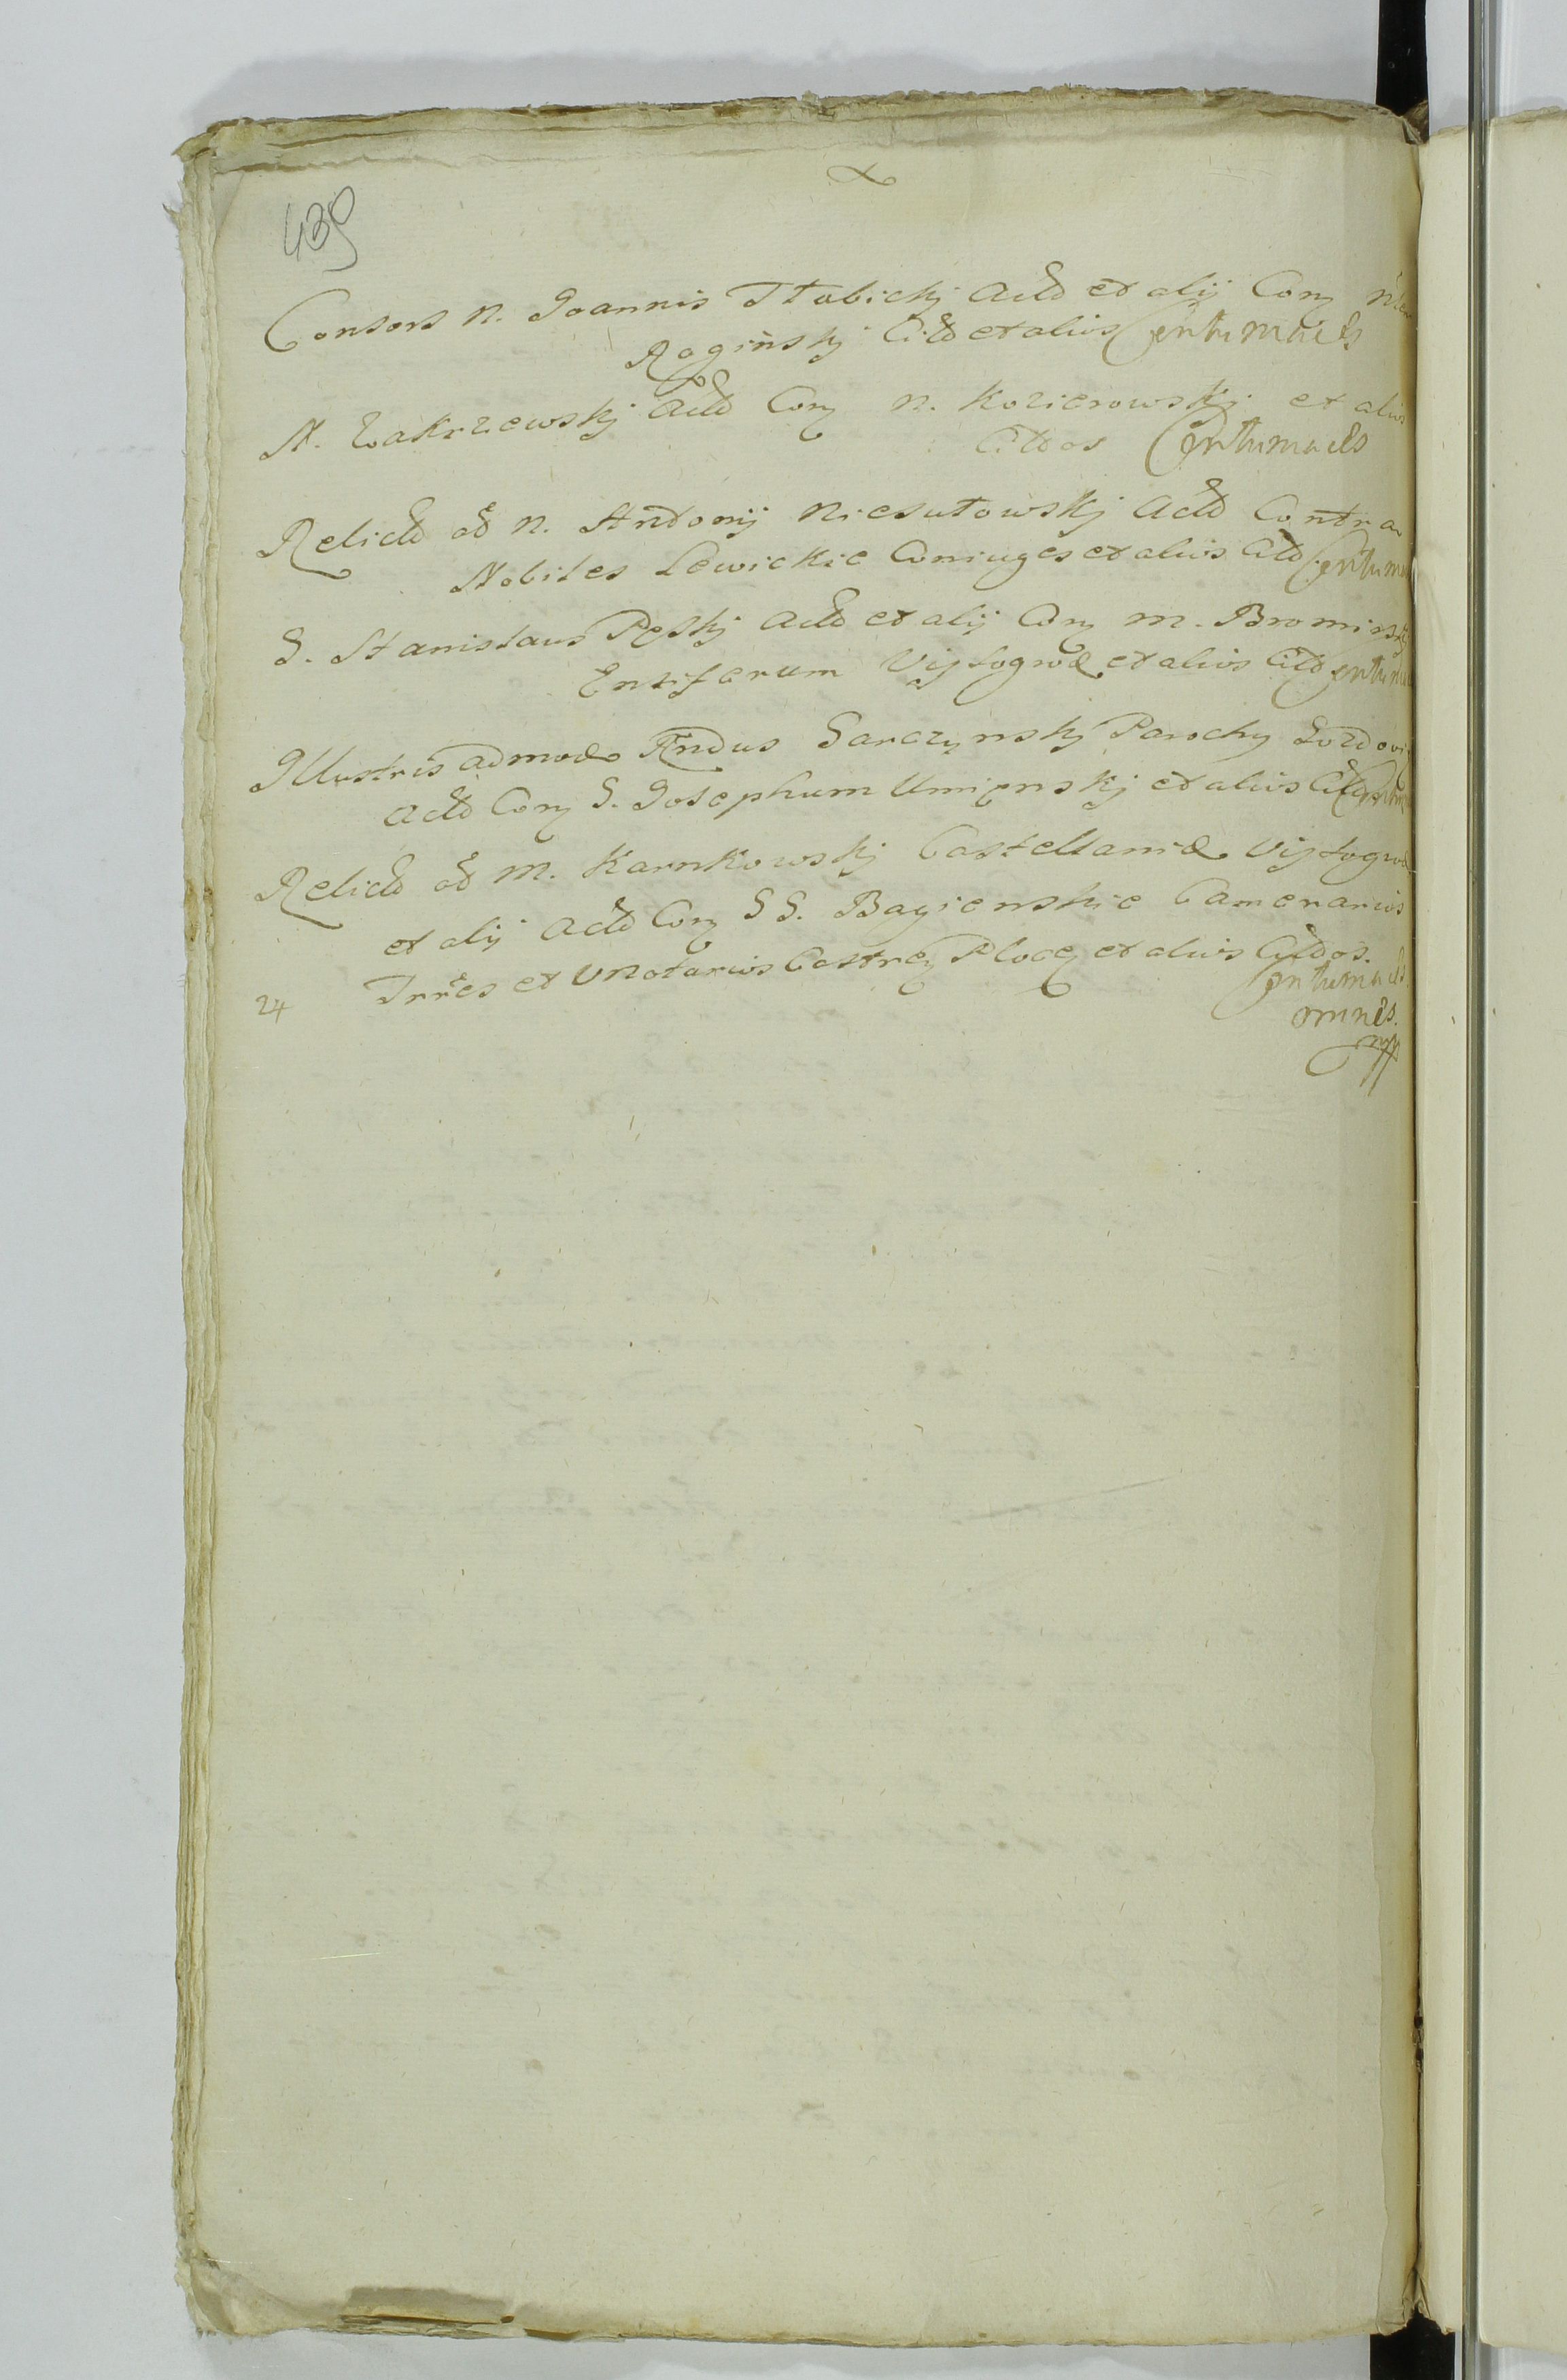 439
Consors N. Joannis Słabickj Actd et alij Con
Roginskj Citd et alios Contumaces
N. Zakrzewskj Actd Con N. Kozierowskj et alios
Citdos Contumaces
Relictd od N. Andonij Niesułowskj Actd Contra
Nobiles Lewickie Coniuges et alios Citd Contum
S. Stanislaus Pęskj Actd et alij Con M. Brominskj
Ensiferum Vyssogrod et alios Citd Contum
Illustris admodo Rndus Sarczynskj Parochy
Actd Con S. Josephum Umięnskj et alios Citd
Relictd od M. Karnkowskj Castellanid Vyssogrod
et alij Actd Con SS. Bagienskie Camerarios
Trres et Vnotarios Castren Plocen et alios Citdos.
24 Contumaces
omnes.